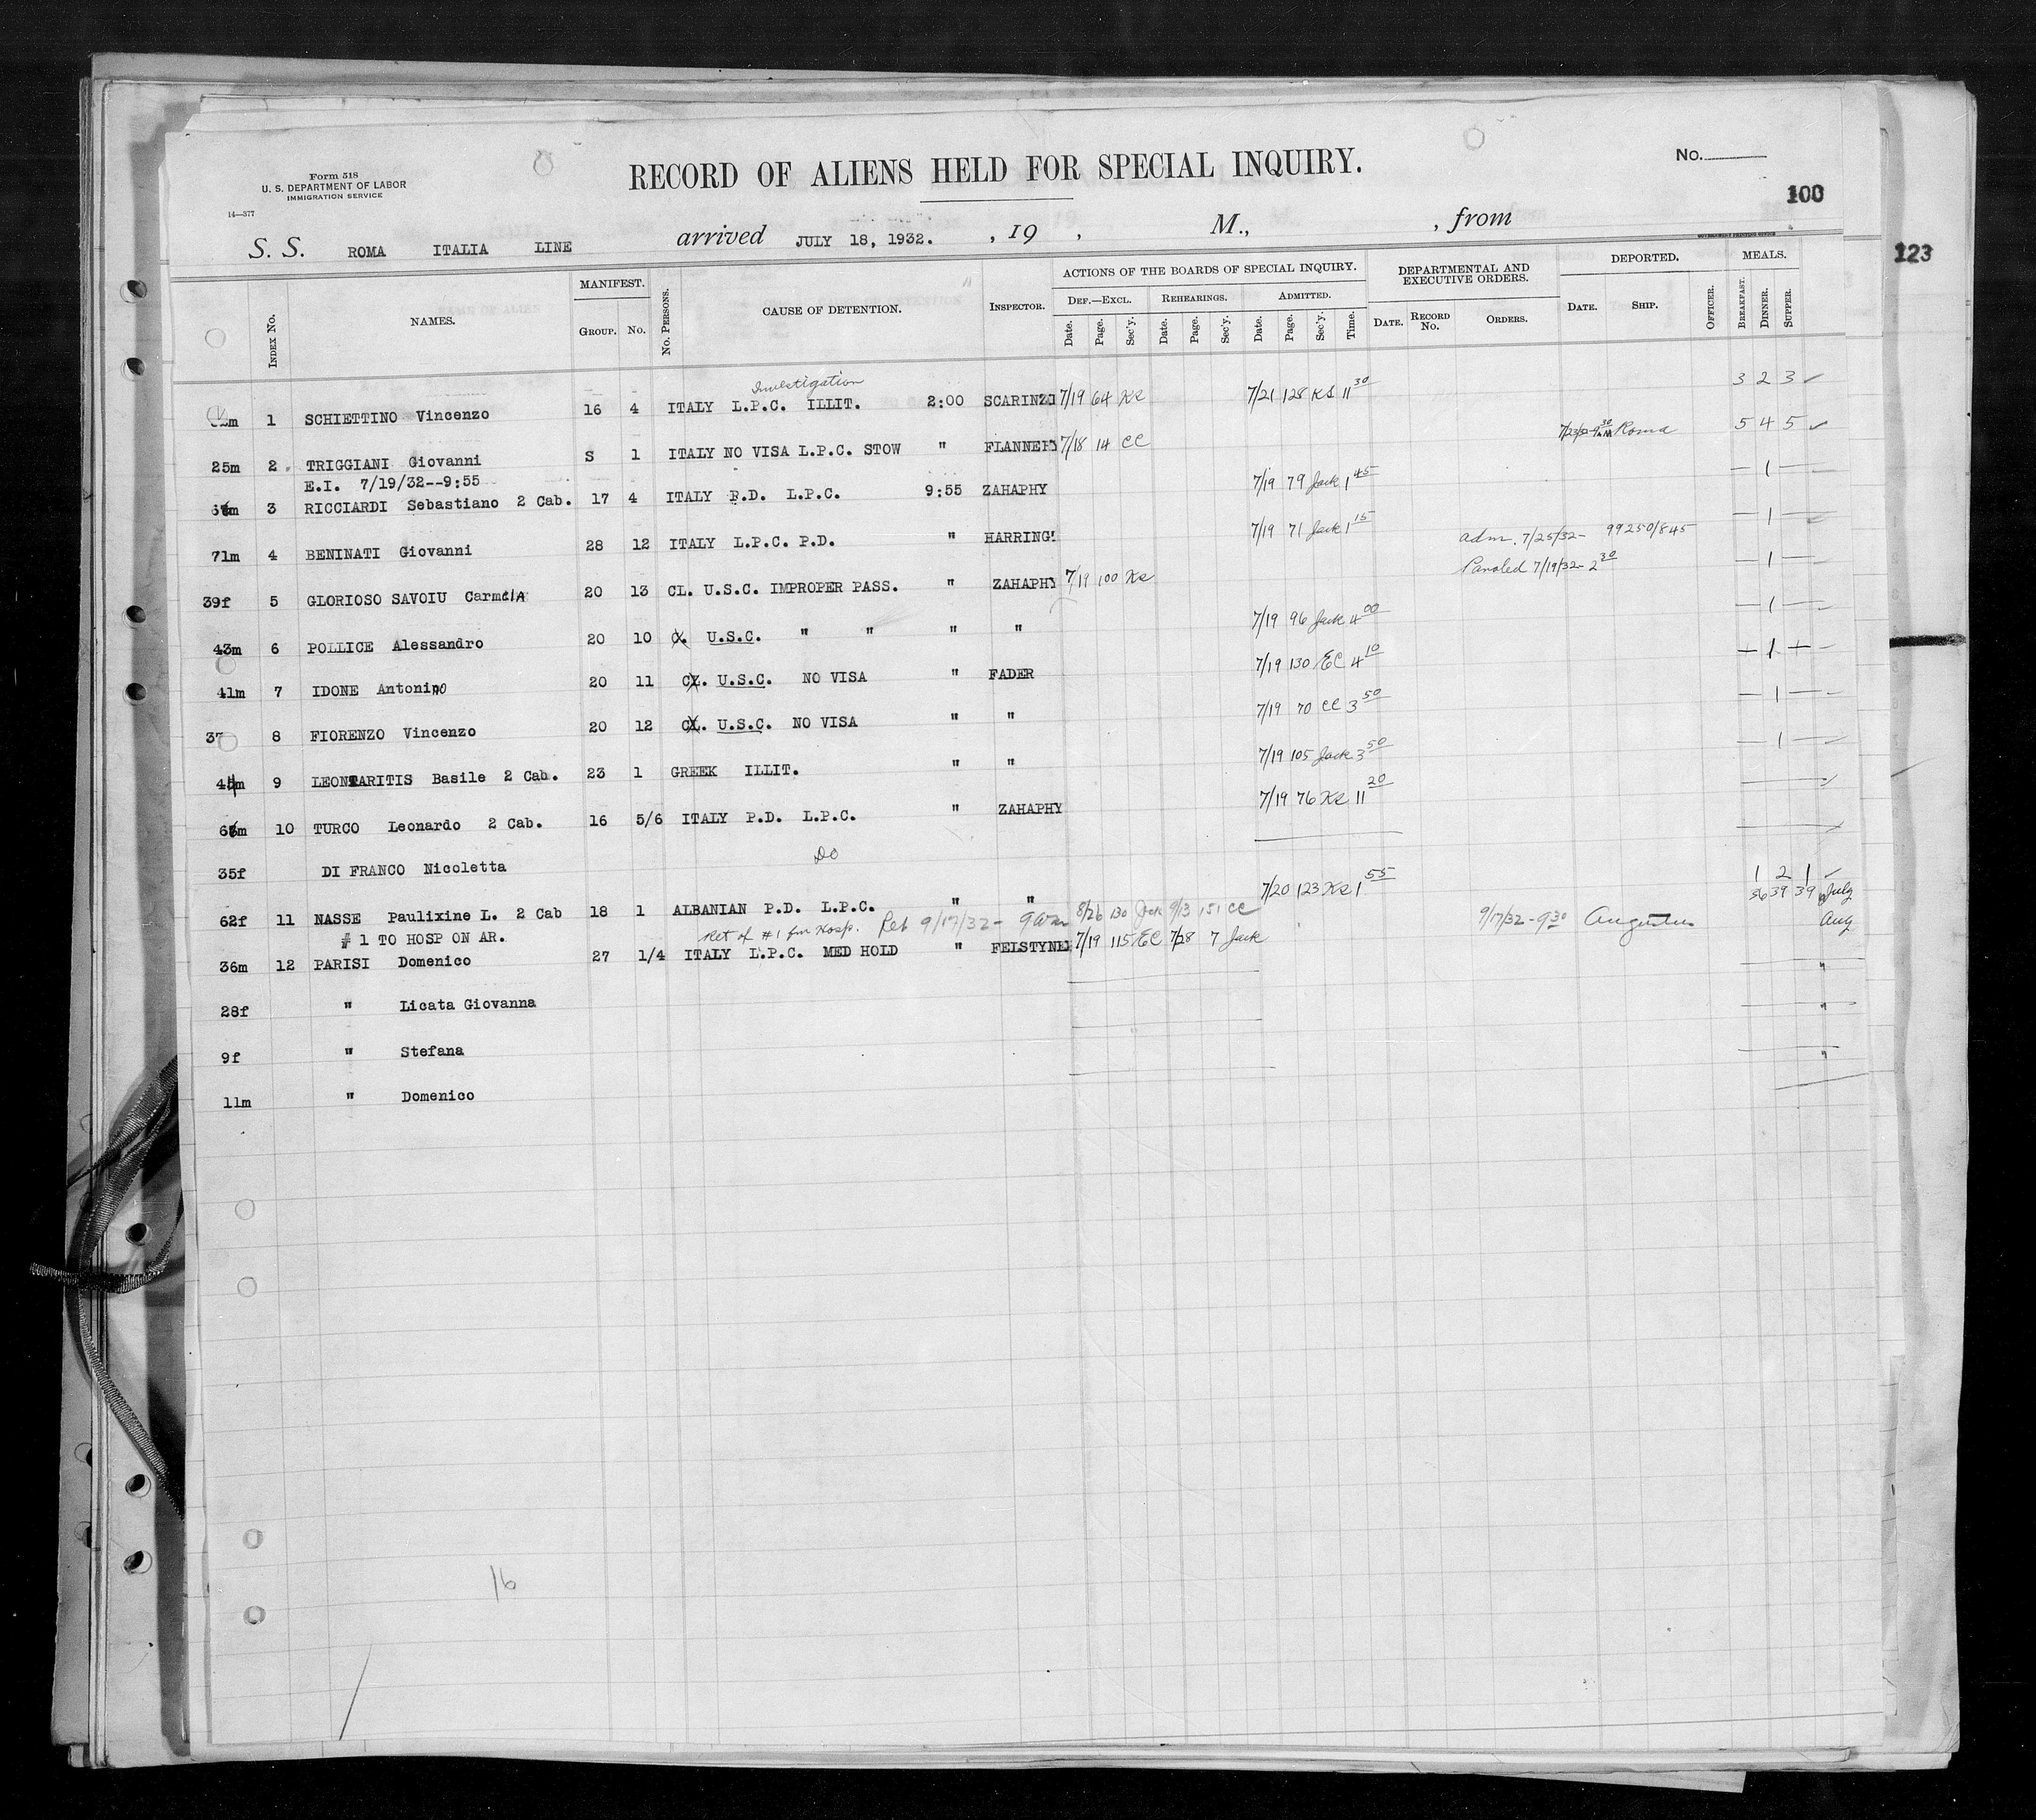 Form 518
U. S. DEPARTMENT OF LABOR
IMMIGRATION SERVICE
14—377
RECORD OF ALIENS HELD FOR SPECIAL INQUIRY.
No.
100
123
S. S. ROMA ITALIA LINE arrived JULY 18, 1932. , 19 , M., , from
GOVERNMENT PRINTING OFFICE
INDEX No. NAMES. MANIFEST. GROUP. No. No. PERSONS. CAUSE OF DETENTION. INSPECTOR. ACTIONS OF THE BOARDS OF SPECIAL INQUIRY. DEF.—EXCL. Date. Page. Sec'y. REHEARINGS. Date. Page. Sec'y. ADMITTED. Date. Page. Sec'y. Time. DEPARTMENTAL AND EXECUTIVE ORDERS. DATE. RECORD No. ORDERS. DEPORTED. DATE. SHIP. OFFICER. MEALS. BREAKFAST. DINNER. SUPPER.
Investigation
m 1 SCHIETTINO Vincenzo 16 4 ITALY L.P.C. ILLIT. 2:00 SCARINZI 7/19 64 KS 7/21 128 KS 11 30 3 2 3 ✓
25m 2 TRIGGIANI Giovanni S 1 ITALY NO VISA L.P.C. STOW " FLANNERY 7/18 14 CC 7/23/32 9 30 AM Roma 5 4 5 ✓
E.I. 7/19/32--9:55
m 3 RICCIARDI Sebastiano 2 Cab. 17 4 ITALY P.D. L.P.C. 9:55 ZAHAPHY 7/19 79 Jack 1 45 — 1 —
71m 4 BENINATI Giovanni 28 12 ITALY L.P.C. P.D. " HARRING 7/19 71 Jack 1 15 — 1 —
adm. 7/25/32- 99250/845
39f 5 GLORIOSO SAVOIU CarmelA 20 13 CL. U.S.C. IMPROPER PASS. " ZAHAPHY 7/19 100 KS Paroled 7/19/32- 2 30 — 1 —
43m 6 POLLICE Alessandro 20 10 U.S.C. " " " " 7/19 96 Jack 4 00 — 1 —
41m 7 IDONE Antonino 20 11 CL. U.S.C. NO VISA " FADER 7/19 130 EC 4 10 — 1 —
37 8 FIORENZO Vincenzo 20 12 CL. U.S.C. NO VISA " " 7/19 70 CC 3 50 — 1 —
m 9 LEONTARITIS Basile 2 Cab. 23 1 GREEK ILLIT. " " 7/19 105 Jack 3 50 — 1 —
m 10 TURCO Leonardo 2 Cab. 16 5/6 ITALY P.D. L.P.C. " ZAHAPHY 7/19 76 KS 11 20
35f DI FRANCO Nicoletta Do
62f 11 NASSE Paulixine L. 2 Cab 18 1 ALBANIAN P.D. L.P.C. " " 7/20 123 KS 1 55 1 2 1 ✓
# 1 TO HOSP ON AR. Ret of #1 fm Hosp. Reb 9/17/32- 8/26 130 Jack 9/13 151 CC 36 39 39 July
36m 12 PARISI Domenico 27 1/4 ITALY L.P.C. MED HOLD " FELSTYNER 7/19 115 EC 7/28 7 Jack 9/17/32-9 30 Augustus Aug
28f " Licata Giovanna "
9f " Stefana "
11m " Domenico "
16